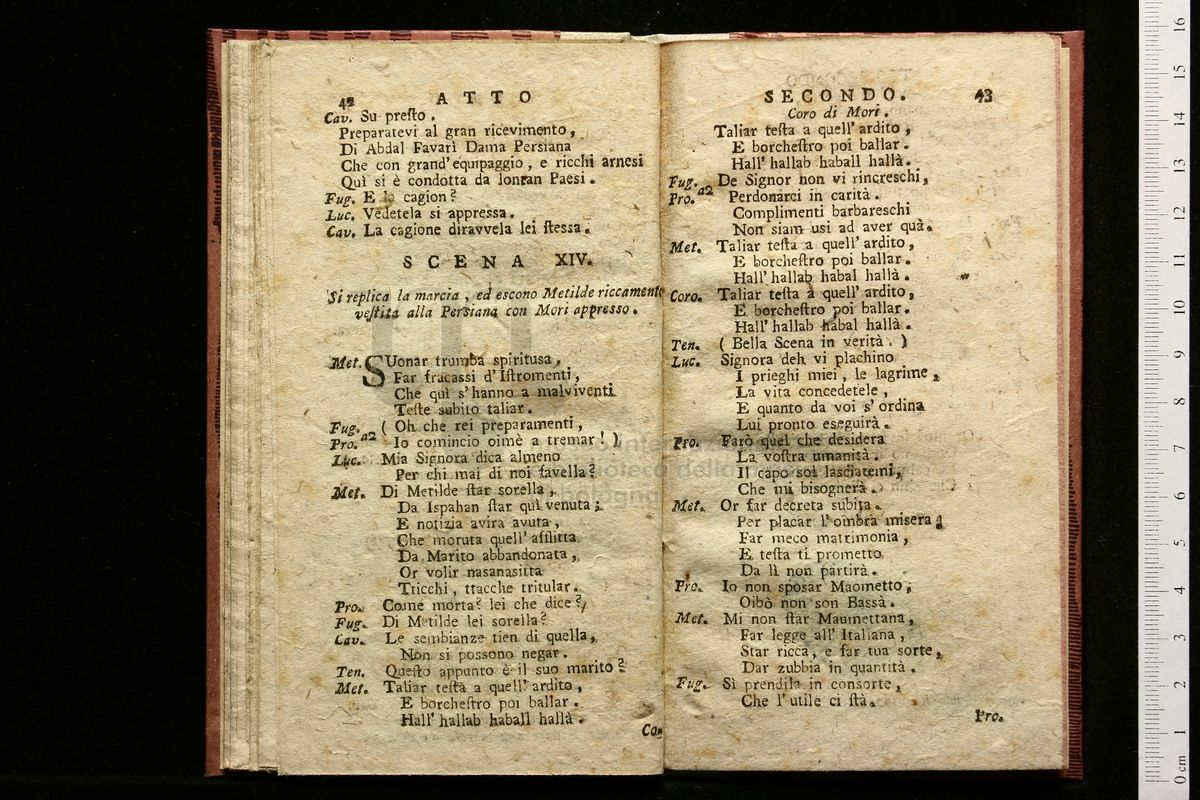 42 ATTO
Cav. Su preſto.
Preparatevi al gran ricevimento,
Di Abdal Favarì Dama Perſiana
Che con grand' equipaggio, e ricchi arnesi
Quì si è condotta da lontan Paesi.
Fug. E la cagion?
Luc. Vedetela si appressa.
Cav. La cagione diravvela lei ſtessa.
SCENA XIV.
Si replica la marcia, ed escono Metilde riccamente
veſtita alla Persiana con Mori appresso.
Met. SUonar trumba spiritusa,
Far fracassi d'Iſtromenti,
Che quì s'hanno a malviventi
Teſte subito taliar.
Fug. ( Oh che rei preparamenti,
Pro. a2 Io comincio oimè a tremar! )
Luc. Mia Signora dica almeno
Per chi mai di noi favella?
Met. Di Metilde ſtar sorella,
Da Ispahan ſtar quì venuta;
E notizia avira avuta,
Che moruta quell' afflitta
Da Marito abbandonata,
Or volir nasanasitta
Tricchi, tracche tritular.
Pro. Come morta? lei che dice?
Fug. Di Metilde lei sorella?
Cav. Le sembianze tien di quella,
Non si possono negar.
Ten. Queſto appunto è il suo marito?
Met. Taliar teſta a quell' ardito,
E borcheſtro poi ballar.
Hall' hallab haball hallà.
Co-
SECONDO. 43
Coro di Mori.
Taliar teſta a quell' ardito,
E borcheſtro poi ballar.
Hall' hallab haball hallà.
Fug. De Signor non vi rincreschi,
Pro. a2 Perdonarci in carità.
Complimenti barbareschi
Non siam usi ad aver quà.
Met. Taliar teſta a quell' ardito,
E borcheſtro poi ballar.
Hall' hallab habal hallà.
Coro. Taliar teſta a quell' ardito,
E borcheſtro poi ballar.
Hall' hallab habal hallà.
Ten. ( Bella Scena in verità. )
Luc. Signora deh vi plachino
I prieghi miei, le lagrime,
La vita concedetele,
E quanto da voi s'ordina
Lui pronto eseguirà.
Pro. Farò quel che desidera
La voſtra umanità.
Il capo sol lasciatemi,
Che mi bisognerà.
Met. Or far decreta subita.
Per placar l'ombra misera;
Far meco matrimonia,
E teſta ti prometto
Da lì non partirà.
Pro. Io non sposar Maometto,
Oibò non son Bassà.
Met. Mi non ſtar Maumettana,
Far legge all' Italiana,
Star ricca, e far tua sorte,
Dar zubbia in quantità.
Fug. Sì prendila in consorte,
Che l'utile ci ſtà.
Pro.